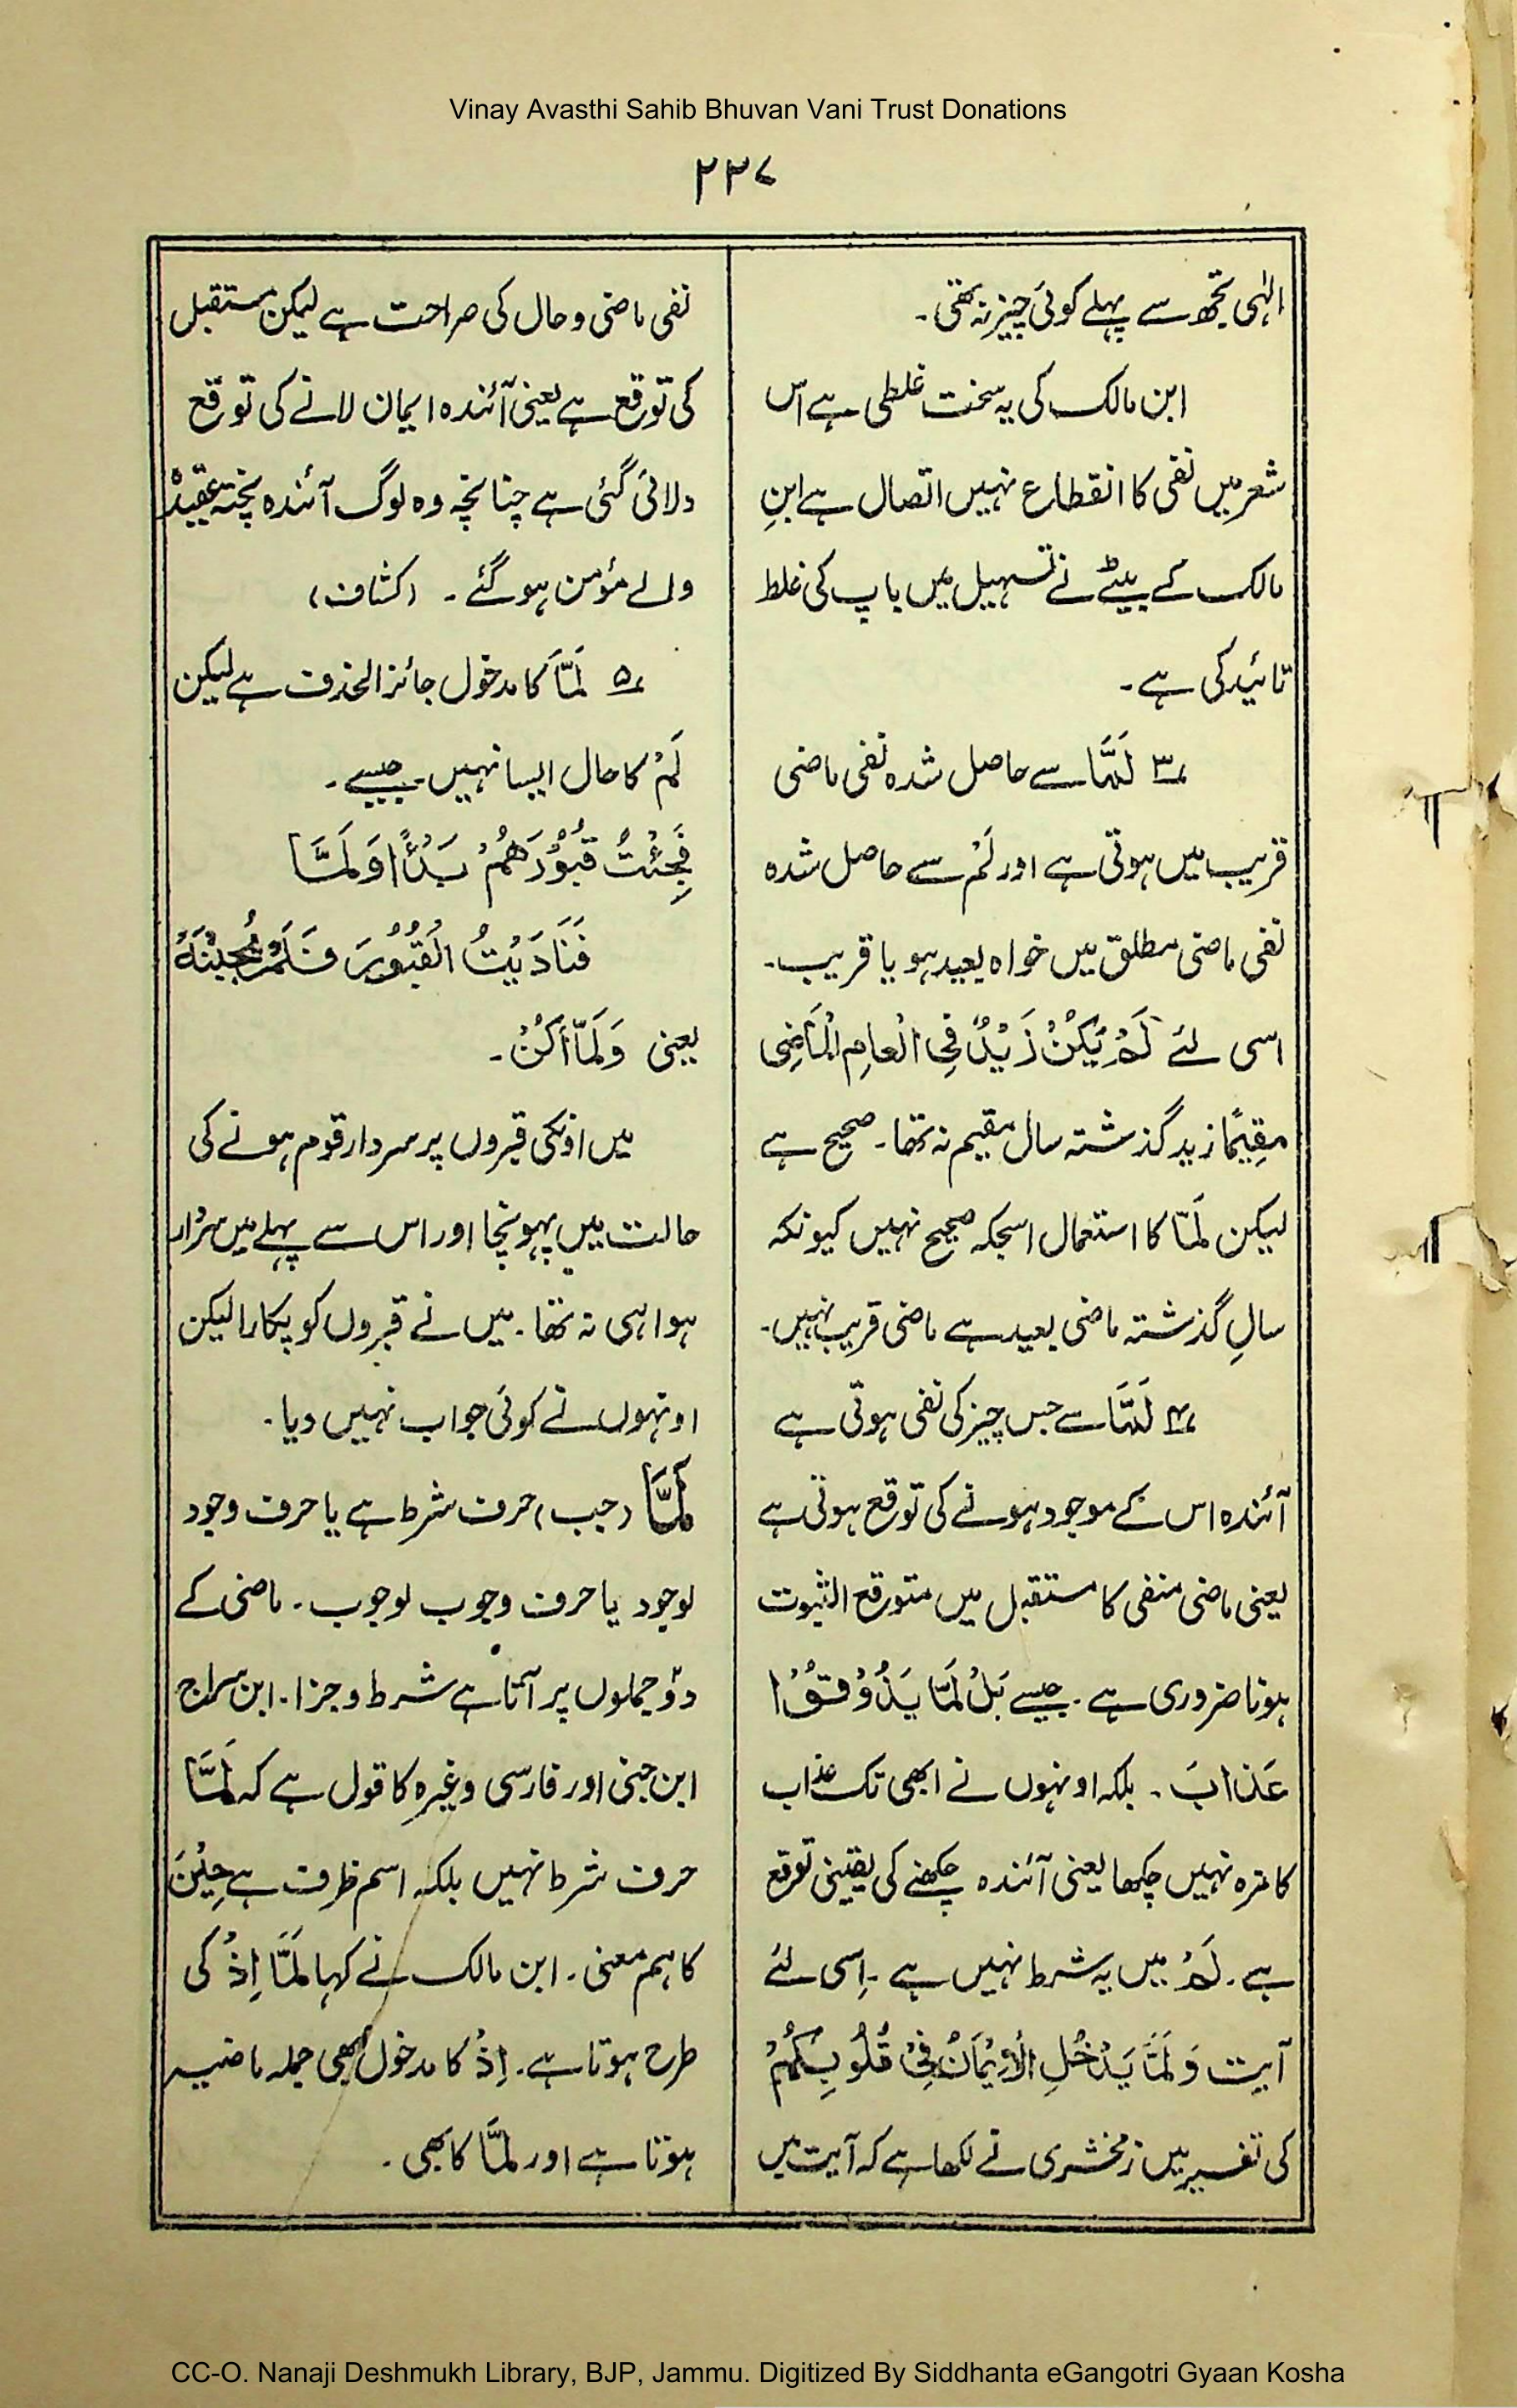 Vinay Avasthi Sahib Bhuvan Vani Trust Donations
۲۲۷
الہٰی تجھ سے پہلے کوئی چیز نہ تھی۔
ابن مالک کی یہ سخت غلطی ہے اس
شعر میں نفی کا انقطاع نہیں اتصال ہے ابنِ
مالک کے بیٹے نے تسہیل میں باپ کی غلط
تائید کی ہے۔
۳؎ لَمَّا سے حاصل شدہ نفی ماضی
قریب میں ہوتی ہے اور لَمْ سے حاصل شدہ
نفی ماضی مطلق میں خواہ بعید ہو یا قریب۔
اسی لئے لَمْ یَکُنْ زَیْدٌ فِی الْعامِ الْمَاضِی
مقِیمًا زید گذشتہ سال مقیم نہ تھا۔ صحیح ہے
لیکن لَمَّا کا استعمال اسجکہ صحیح نہیں کیونکہ
سالِ گذشتہ ماضی بعید ہے ماضی قریب نہیں۔
۴؎ لَمَّا سے جس چیز کی نفی ہوتی ہے
آئندہ اس کے موجود ہونے کی توقع ہوتی ہے
یعنی ماضی منفی کا مستقبل میں متوقع الثبوت
ہونا ضروری ہے۔ جیسے بَلْ لَمَّا یَذُوْقُوْا
عَذابَ ۔ بلکہ اونہوں نے ابھی تک عذاب
کا مزہ نہیں چکھا یعنی آئندہ چکھنے کی یقینی توقع
ہے۔ لَمْ میں یہ شرط نہیں ہے۔ اِسی لئے
آیت وَ لَمَّا یَدْخُلِ الْاِیْمَانُ فِیْ قُلُوْبِکُمْ
کی تفسیر میں زمخشری نے لکھا ہے کہ آیت میں
نفی ماضی و حال کی صراحت ہے لیکن مستقبل
کی توقع ہے یعنی آئندہ ایمان لانے کی توقع
دلائی گئی ہے چنانچہ وہ لوگ آئندہ پختہ عقیدہ
والے مؤمن ہو گئے ۔ (کشاف)
۵؎ لَمَّا کا مدخول جائز الحذف ہے لیکن
لَمْ کا حال ایسا نہیں۔ جیسے ۔
فَجِئْتُ قُبُوْرَهُمْ بَدْأً اوَلَمَّا
فَنَادَیْتُ الْقُبُوْرَ فَلَمْ یُجِبْنَہٗ
یعنی وَ لَمَّا اَکُنْ۔
میں اونکی قبروں پر سردار قوم ہونے کی
حالت میں پہونچا اور اس سے پہلے میں سردار
ہوا ہی نہ تھا۔ میں نے قبروں کو پکارا لیکن
اونہوں نے کوئی جواب نہیں دیا۔
لَمَّا (جب) حرف شرط ہے یا حرف وجود
لوجود یا حرف وجوب لوجوب ۔ ماضی کے
دوؔ جملوں پر آتا ہے شرط و جزا۔ ابن سراج
ابن جنی اور فارسی وغیرہ کا قول ہے کہ لَمَّا
حرف شرط نہیں بلکہ اسم ظرف ہے حِیْنَ
کا ہم معنی۔ ابن مالک نے کہا لَمَّا اِذْ کی
طرح ہوتا ہے۔ اِذْ کا مدخول بھی جملہ ماضیہ
ہوتا ہے اور لمَّا کا بھی۔
CC-O. Nanaji Deshmukh Library, BJP, Jammu. Digitized By Siddhanta eGangotri Gyaan Kosha